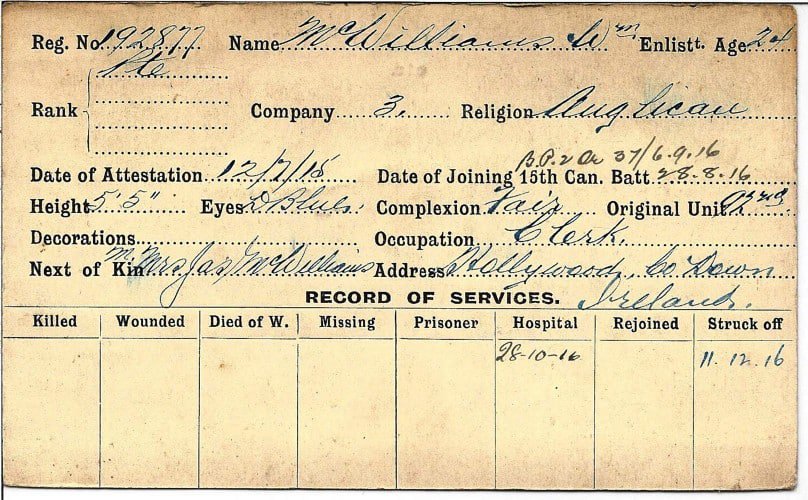 Reg. No. 192877 Name McWilliams Wm Enlistt. Age 24
Pte
Rank Company 3. Religion Anglican
B.P. 2 Or 37/6.9.16
Date of Attestation 12/7/15 Date of Joining 15th Can. Batt 28.8.16
Height 5' 5" Eyes D Blue. Complexion Fair Original Unit 92nd
Decorations Occupation Clerk.
Next of Kin M. Mrs Jas McWilliams Address Hollywood, Co Down
Ireland.
RECORD OF SERVICES.
Killed Wounded Died of W. Missing Prisoner Hospital Rejoined Struck off
28-10-16 11.12.16